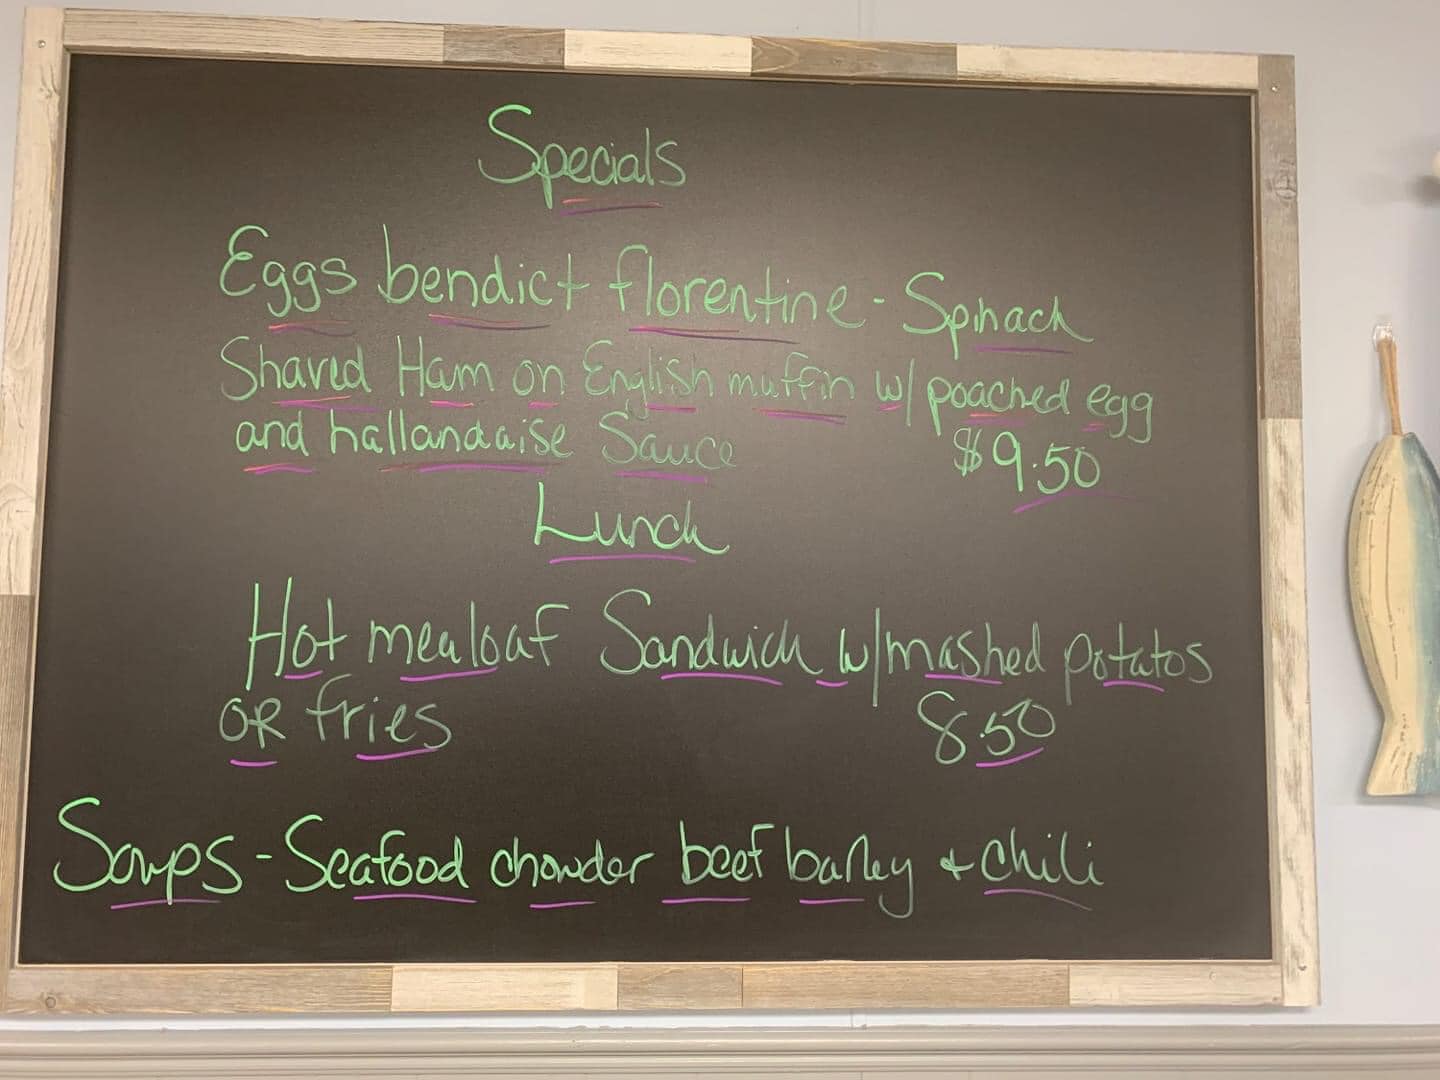 Specials
Eggs bendict florentine - Spinach
Shaved Ham on English muffin w/ poached egg
and hallandaise Sauce $9.50
Lunch
Hot mealoaf Sandwich w/mashed potatos
OR fries 8.50
Soups - Seafood chowder beef barley + chili